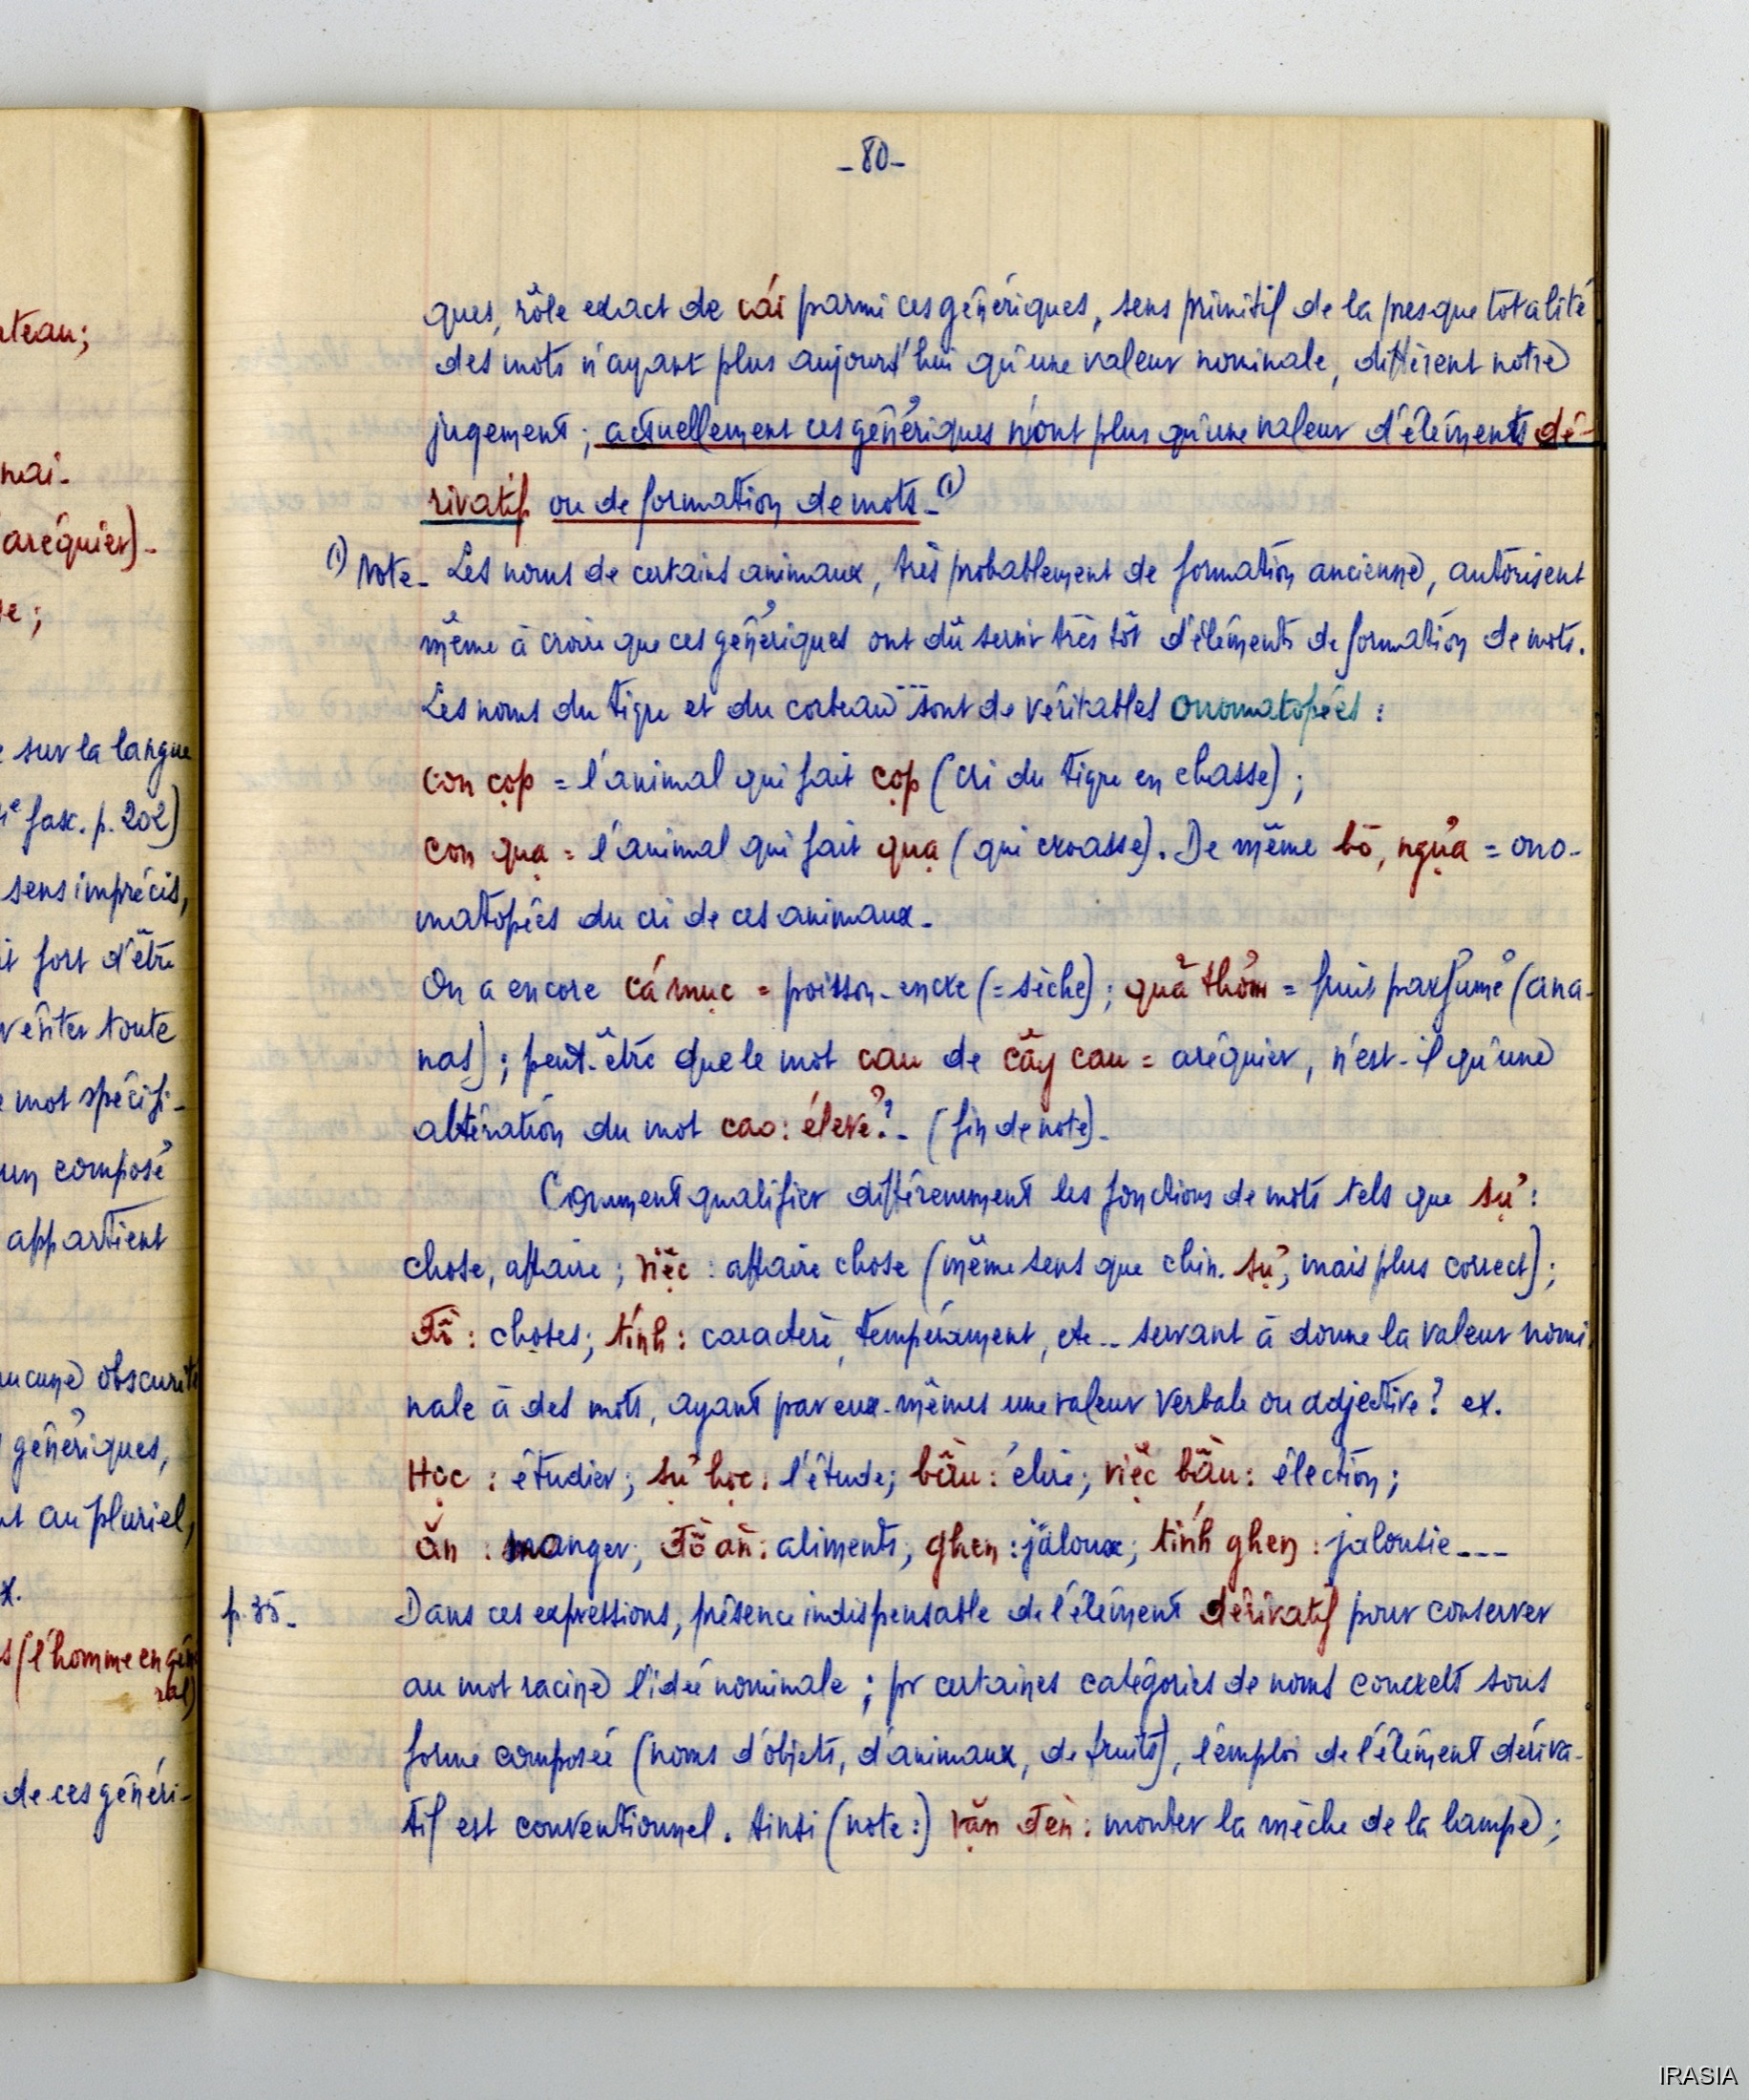 uteau;
nai-
aréquier)-
se;
sur la langue
fasc. p. 202)
sens imprécis,
it fort d'être
vênter toute
mot spécifi-
un composé
appartient
aucune obscurité
génériques,
nt au pluriel,
x.
s (l'homme en géné
ral)
de ces généri-
-80-
ques, rôle exact de cái parmi ces génériques, sens primitif de la presque totalité
des mots n'ayant plus aujourd'hui qu'une valeur nominale, diffèrent notre
jugement; actuellement ces génériques n'ont plus qu'une valeur d'éléments dé-
rivatif ou de formation de mots-(1)
(1) Note- Les noms de certains animaux, très probablement de formation ancienne, autorisent
même à croire que ces génériques ont dû servir très tôt d'éléments de formation de mots.
Les noms du tigre et du corbeau... sont de véritables onomatopées :
con cọp = l'animal qui fait cọp (cri du tigre en chasse);
con quạ = l'animal qui fait quạ (qui croasse). De même bò, ngựa = ono-
matopées du cri de ces animaux-
On a encore cá mực = poisson-encre (= sèche); quả thơm = fruit parfumé (ana-
nas); peut-être que le mot cau de cây cau = aréquier, n'est-il qu'une
altération du mot cao: élevé?- (fin de note)-
Comment qualifier différemment les fonctions de mots tels que sự :
chose, affaire; việc : affaire chose (même sens que chin. sự, mais plus correct);
đồ : choses; tính : caractère, tempérament, etc-- servant à donne la valeur nomi
nale à des mots, ayant par eux-mêmes une valeur verbale ou adjective? ex.
Học : étudier; sự học: l'étude; bầu: élire; việc bầu: élection;
ăn : manger; đồ ăn: aliments; ghen : jaloux; tính ghen : jalousie---
p. 35- Dans ces expressions, présence indispensable de l'élément dérivatif pour conserver
au mot racine l'idée nominale; pr certaines catégories de noms concrets sous
forme composée (noms d'objets, d'animaux, de fruits), l'emploi de l'élément dériva-
tif est conventionnel. Ainsi (note:) vặn đèn: monter la mèche de la lampe;
IRASIA